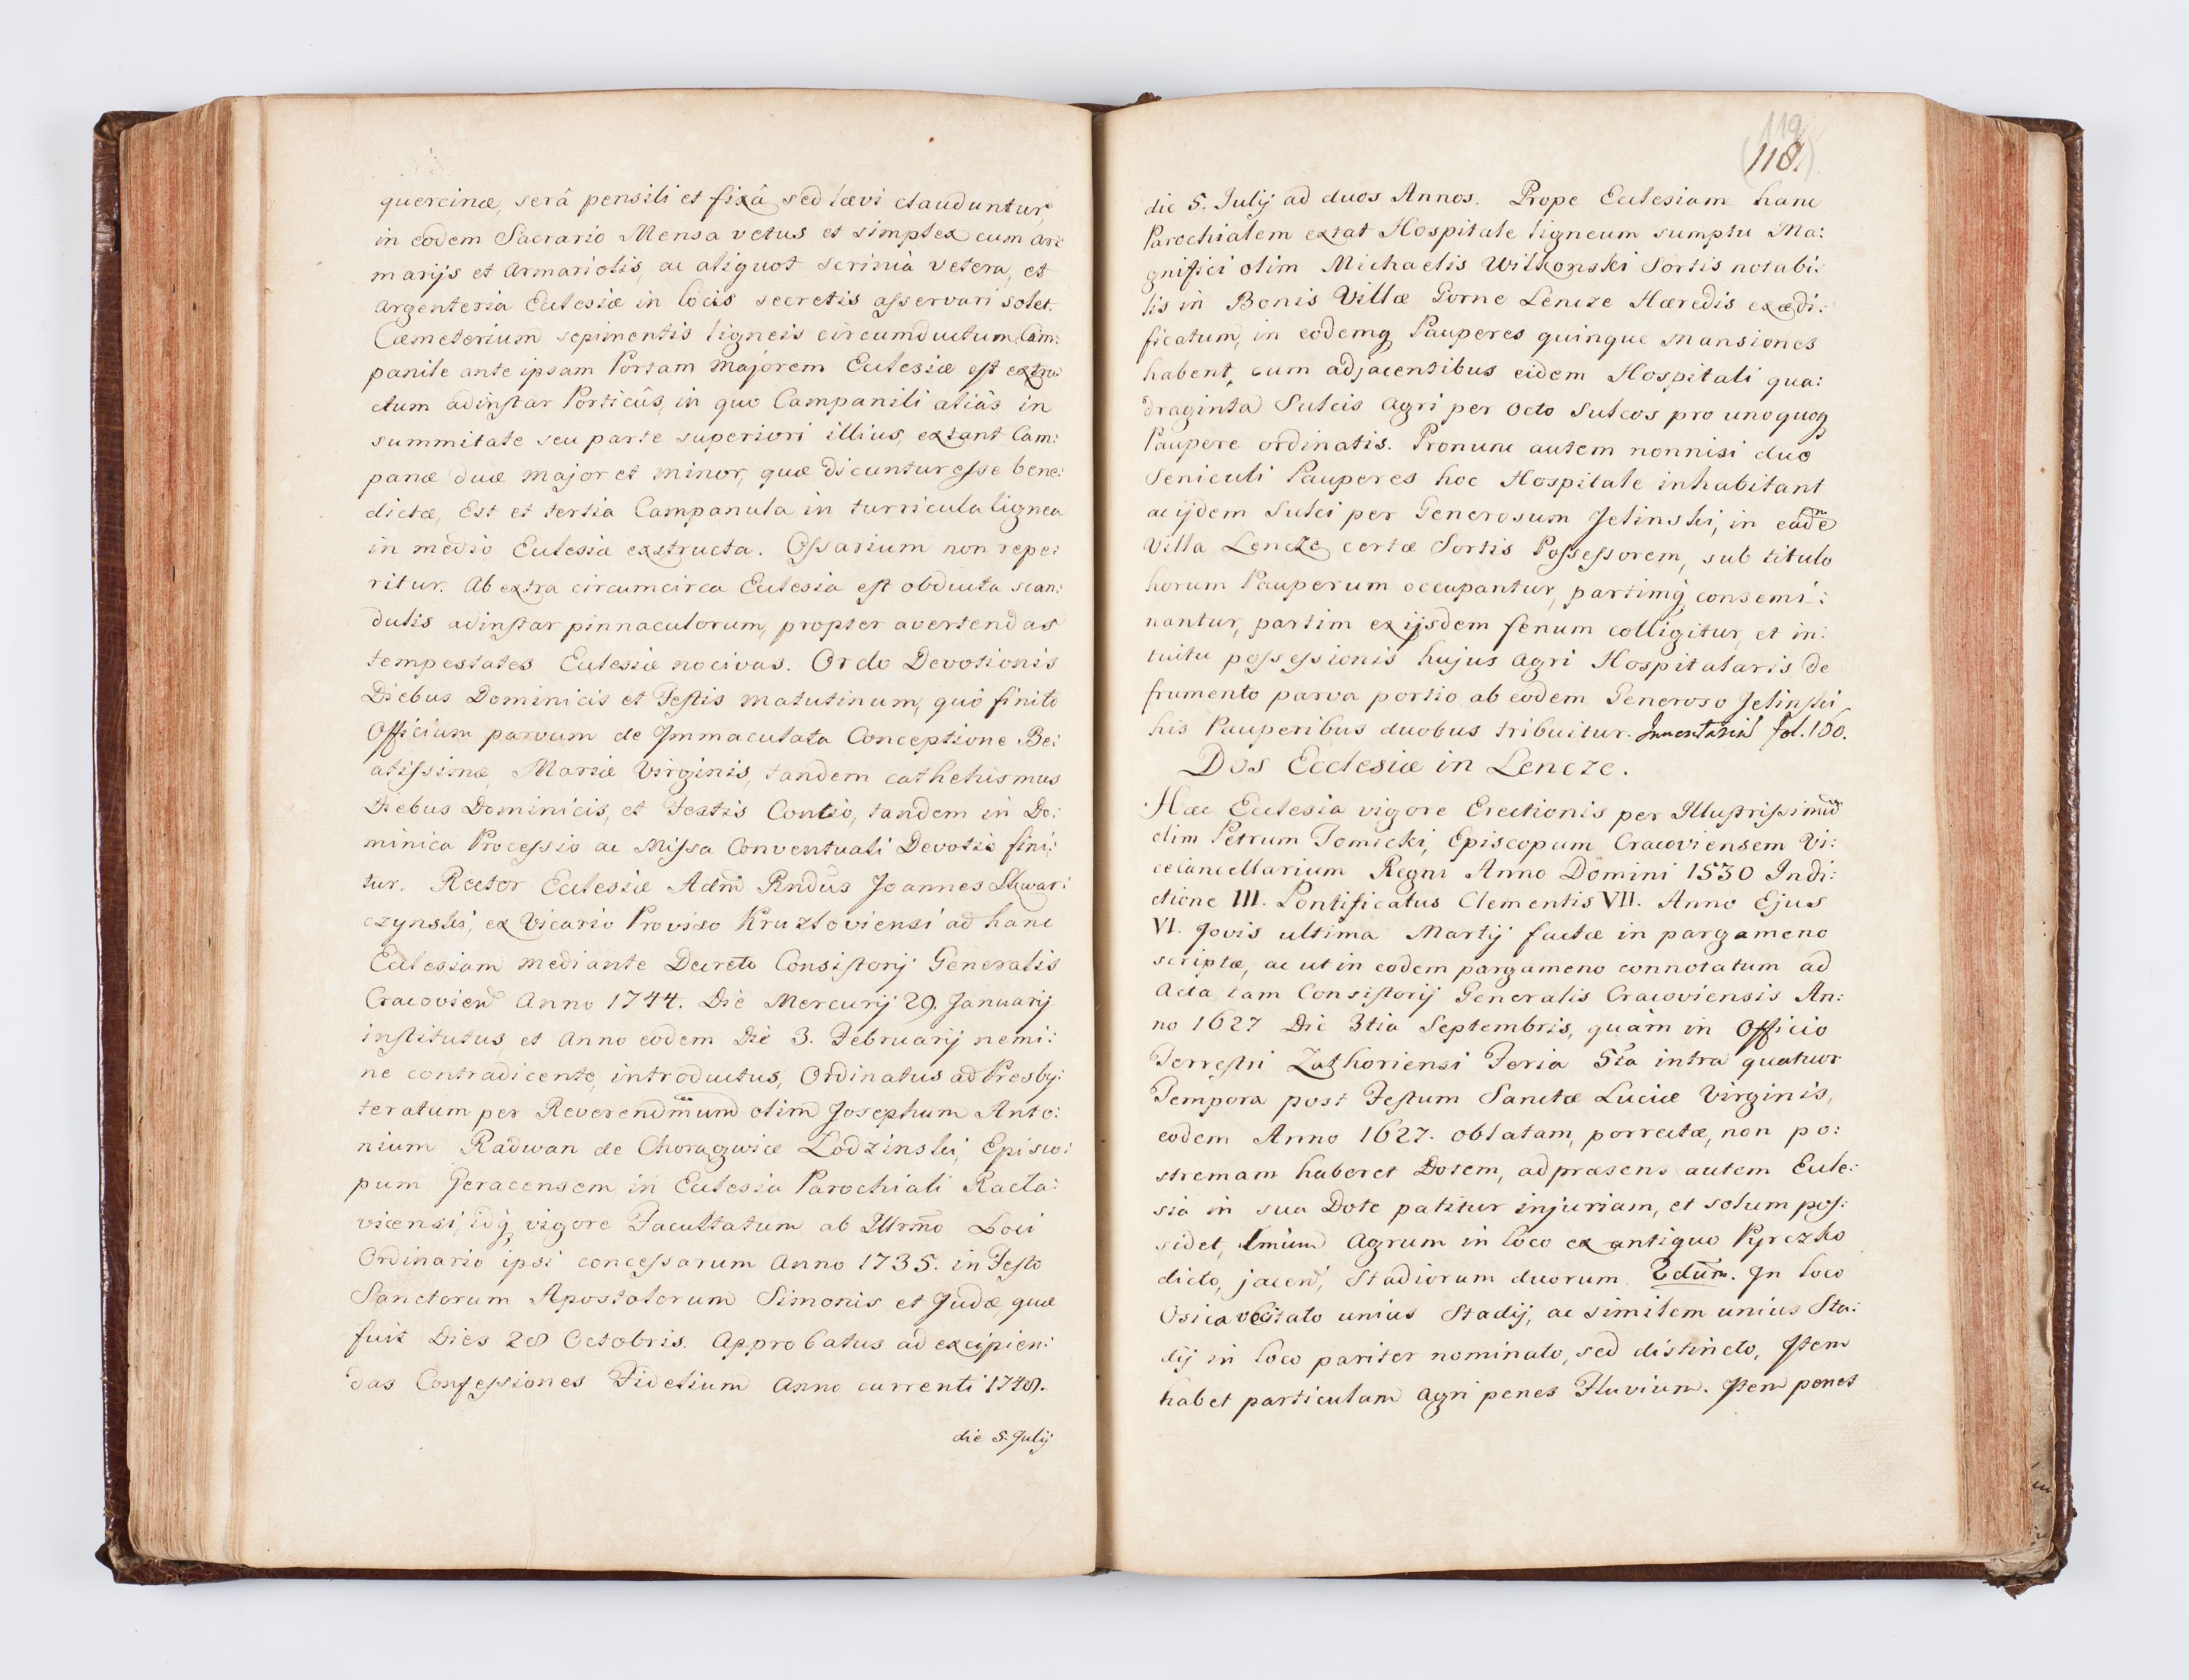 quercinæ, serâ pensili et fixâ sed lævi clauduntur,
in eodem Sacrario Mensa vetus et simplex cum Ar:
marijs et Armariolis, ac aliquot scrinia vetera, et
Argenteria Ecclesiæ in locis secretis asservari solet.
Cæmeterium sepimentis ligneis circumductum, Cam:
panile ante ipsam Portam majorem Ecclesiæ est extru
ctum adinstar Porticûs, in quo Campanili aliàs in
summitate seu parte superiori illius, extant Cam:
panæ duæ major et minor, quæ dicuntur esse bene:
dictæ, Est et tertia Campanula in turricula lignea
in medio Ecclesiæ exstructa. Ossarium non repe:
ritur. Ab extra circumcirca Ecclesia est obducta scan:
dulis adinstar pinnaculorum, propter avertendas
tempestates Ecclesiæ nocivas. Ordo Devotionis
Diebus Dominicis et Festis matutinum, quô finitô
Officium parvum de Immaculata Conceptione Be:
atissimæ Mariæ Virginis, tandem cathehismus
Diebus Dominicis, et Festis Contio, tandem in Do:
minica Processio ac Missa Conventuali Devotio fini:
tur. Rector Ecclesiæ Adm̃ Rndũs Joannes Skwar:
czynski, ex Vicario Proviso Kruzloviensi ad hanc
Ecclesiam mediante Decreto Consistorij Generalis
Cracovien̄ Anno 1744. Die Mercurij 29. Januarij
institutus, et Anno eodem Die 3. Februarij nemi:
ne contradicente, introductus, Ordinatus ad Presby:
teratum per Reverendm̃um olim Josephum Anto:
nium Radwan de Choragwice Lodzinski, Episco:
pum Geracensem in Ecclesia Parochiali Racla:
vicensi, idq́ vigore Facultatum ab Illrm̃o Loci
Ordinario ipsi concessarum Anno 1735. in Festo
Sanctorum Apostolorum Simonis et Judæ, quæ
fuit Dies 28 Octobris. Approbatus ad excipien:
das Confessiones Fidelium Anno currenti 1748.
die 5. Julij
119
118.
die 5. Julij ad duos Annos. Prope Ecclesiam hanc
Parochialem extat Hospitale ligneum sumptu Ma:
gnifici olim Michaelis Wilkonski Sortis notabi:
lis in Bonis Villæ Gorne Lencze Hæredis exædi:
ficatum, in eodemq Pauperes quinque mansiones
habent, cum adjacentibus eidem Hospitali qua:
draginta Sulcis Agri per Octo Sulcos pro unoquoq
Paupere ordinatis. Pronunc autem nonnisi duo
Seniculi Pauperes hoc Hospitale inhabitant
ac ijdem Sulci per Generosum Jelinski, in eadē
Villa Lencze certæ Sortis Possessorem, sub titulo
horum Pauperum occupantur, partimq́ consemi:
nantur, partim ex ijsdem fenum colligitur, et in:
tuitu possessionis hujus Agri Hospitalaris de
frumento parva portio ab eodem Generoso Jelinski
his Pauperibus duobus tribuitur. fol. 160.
Dos Ecclesiæ in Lencze.
Hæc Ecclesia vigore Erectionis per Illustrissimũ
olim Petrum Tomicki, Episcopum Cracoviensem Vi:
cecancellarium Regni Anno Domini 1530 Indi:
ctione III. Pontificatus Clementis VII. Anno Ejus
VI. Jovis ultima Martij factæ in pargameno
scriptæ, ac ut in eodem pargameno connotatum ad
Acta tam Consistorij Generalis Cracoviensis An:
no 1627 Die 3tia Septembris, quàm in Officio
Terrestri Zathoriensi Feria 5ta intra quatuor
Tempora post Festum Sanctæ Luciæ Virginis,
eodem Anno 1627. oblatam, porrectæ, non po:
stremam haberet Dotem, ad præsens autem Eccle:
sia in sua Dote patitur injuriam, et solum pos:
sidet, Agrum in loco ex antiquo Pyrczko
dicto, jacen̄, Stadiorum duorum 2dũm. In loco
Osica vocitato unius Stadij, ac similem unius Sta:
dij in loco pariter nominato, sed distincto, Item
habet particulam Agri penes Fluvium. Item penes